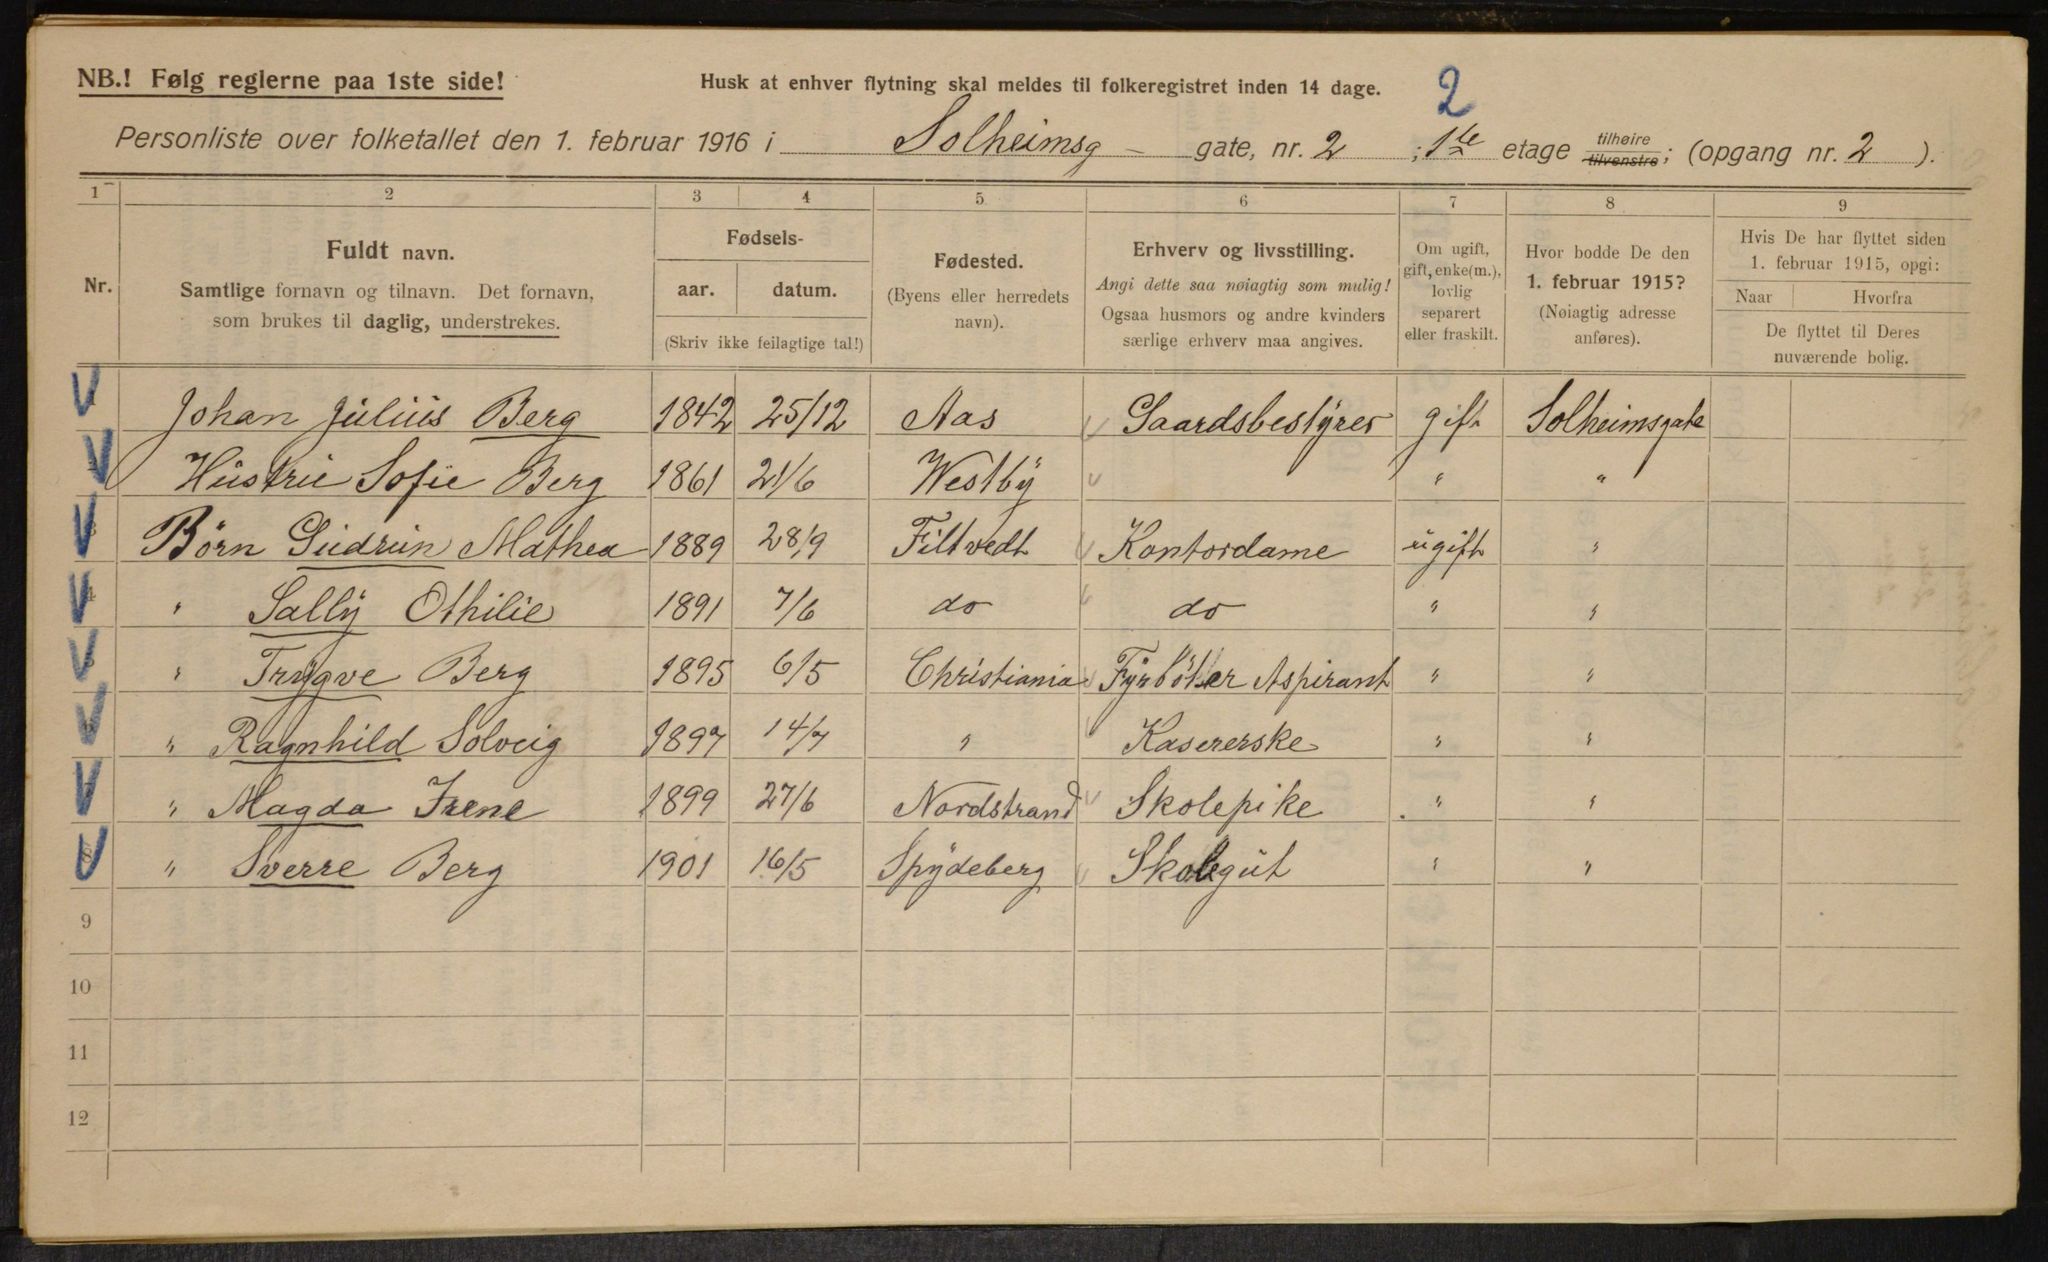 NB.! Følg reglerne paa 1ste side!
Husk at enhver flytning skal meldes til folkeregistret inden 14 dage.
2
Personliste over folketallet den 1. februar 1916 i Solheimsg gate, nr. 2 ; 1ste etage tilhøire tilvenstre ; (opgang nr. 2 ).
1 2 3 4 5 6 7 8 9
Nr.
Fuldt navn.
Samtlige fornavn og tilnavn. Det fornavn,
som brukes til daglig, understrekes.
Fødsels-
aar. datum.
(Skriv ikke feilagtige tal!)
Fødested.
(Byens eller herredets
navn).
Erhverv og livsstilling.
Angi dette saa nøiagtig som mulig!
Ogsaa husmors og andre kvinders
særlige erhverv maa angives.
Om ugift,
gift, enke(m.),
lovlig
separert
eller fraskilt.
Hvor bodde De den
1. februar 1915?
(Nøiagtig adresse
anføres).
Hvis De har flyttet siden
1. februar 1915, opgi:
Naar Hvorfra
De flyttet til Deres
nuværende bolig.
1 Johan Julius Berg 1842 25/12 Aas Gaardsbestyrer gift Solheimsgate
2 Hustrue Sofie Berg 1861 21/6 Westby " "
3 Børn Gudrun Mathea 1889 28/9 Filtvedt Kontordame ugift "
4 " Sally Othilie 1891 7/6 do do " "
5 " Trygve Berg 1895 6/5 Christiania Fyrbøter Aspirant " "
6 " Ragnhild Solveig 1897 14/7 " Kasererske " "
7 " Magda Irene 1899 27/6 Nordstrand Skolepike " "
8 " Sverre Berg 1901 16/5 Spydeberg Skolegut " "
9
10
11
12